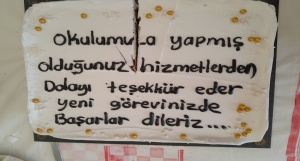 Okulumuza yapmış
olduğunuz hizmetlerden
Dolayı teşekkür eder
yeni görevinizde
Başarlar dileriz...